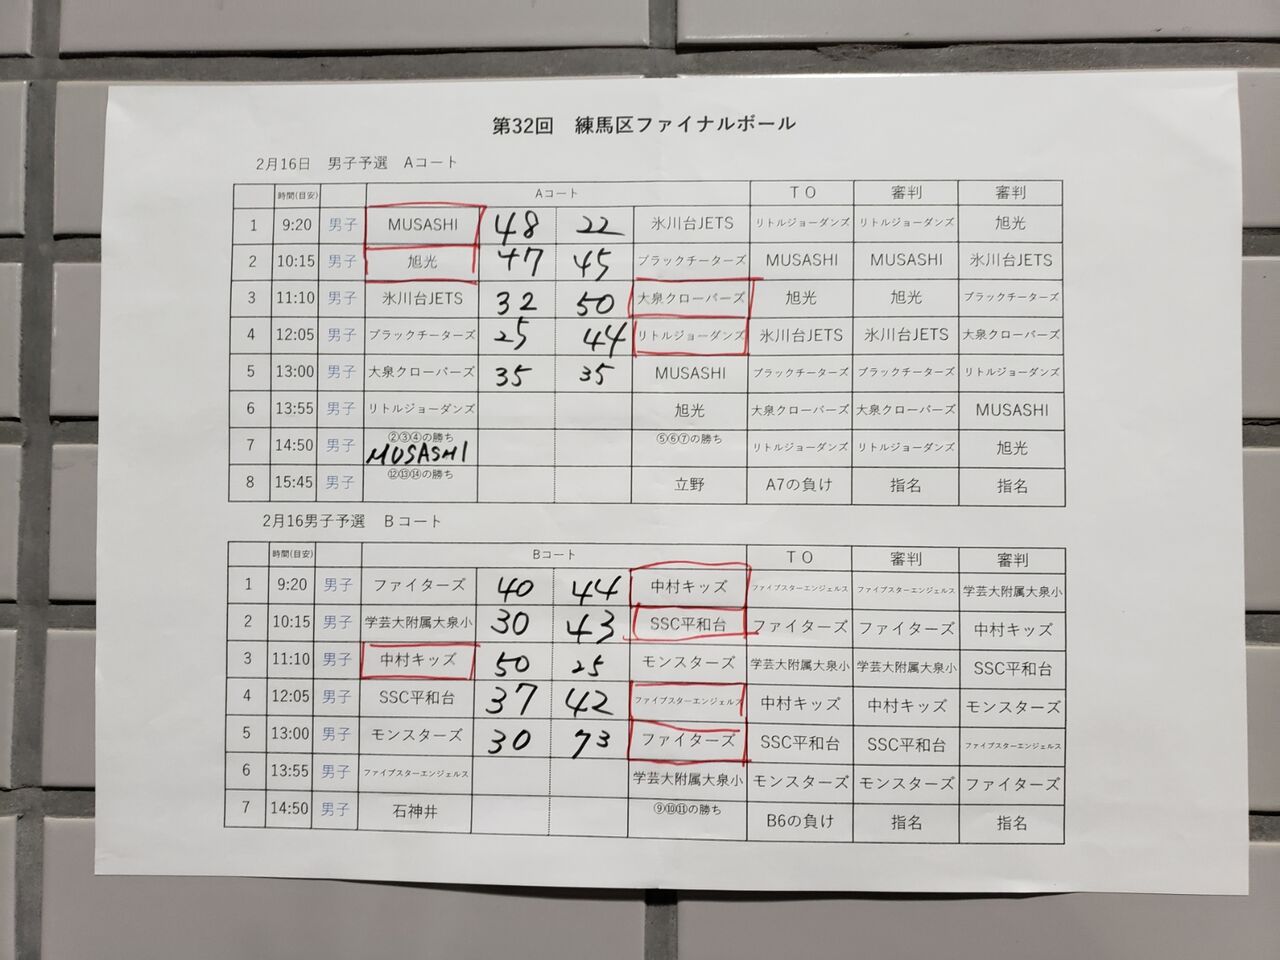 第32回 練馬区ファイナルボール
2月16日 男子予選 Aコート
時間(目安) Aコート TO 審判 審判
1 9:20 男子 MUSASHI 48 22 氷川台JETS リトルジョーダンズ リトルジョーダンズ 旭光
2 10:15 男子 旭光 47 45 ブラックチーターズ MUSASHI MUSASHI 氷川台JETS
3 11:10 男子 氷川台JETS 32 50 大泉クローバーズ 旭光 旭光 ブラックチーターズ
4 12:05 男子 ブラックチーターズ 25 44 リトルジョーダンズ 氷川台JETS 氷川台JETS 大泉クローバーズ
5 13:00 男子 大泉クローバーズ 35 35 MUSASHI ブラックチーターズ ブラックチーターズ リトルジョーダンズ
6 13:55 男子 リトルジョーダンズ 旭光 大泉クローバーズ 大泉クローバーズ MUSASHI
7 14:50 男子 ②③④の勝ち MUSASHI ⑤⑥⑦の勝ち リトルジョーダンズ リトルジョーダンズ 旭光
8 15:45 男子 ⑫⑬⑭の勝ち 立野 A7の負け 指名 指名
2月16男子予選 Bコート
時間(目安) Bコート TO 審判 審判
1 9:20 男子 ファイターズ 40 44 中村キッズ ファイブスターエンジェルス ファイブスターエンジェルス 学芸大附属大泉小
2 10:15 男子 学芸大附属大泉小 30 43 SSC平和台 ファイターズ ファイターズ 中村キッズ
3 11:10 男子 中村キッズ 50 25 モンスターズ 学芸大附属大泉小 学芸大附属大泉小 SSC平和台
4 12:05 男子 SSC平和台 37 42 ファイブスターエンジェルス 中村キッズ 中村キッズ モンスターズ
5 13:00 男子 モンスターズ 30 73 ファイターズ SSC平和台 SSC平和台 ファイブスターエンジェルス
6 13:55 男子 ファイブスターエンジェルス 学芸大附属大泉小 モンスターズ モンスターズ ファイターズ
7 14:50 男子 石神井 ⑨⑩⑪の勝ち B6の負け 指名 指名